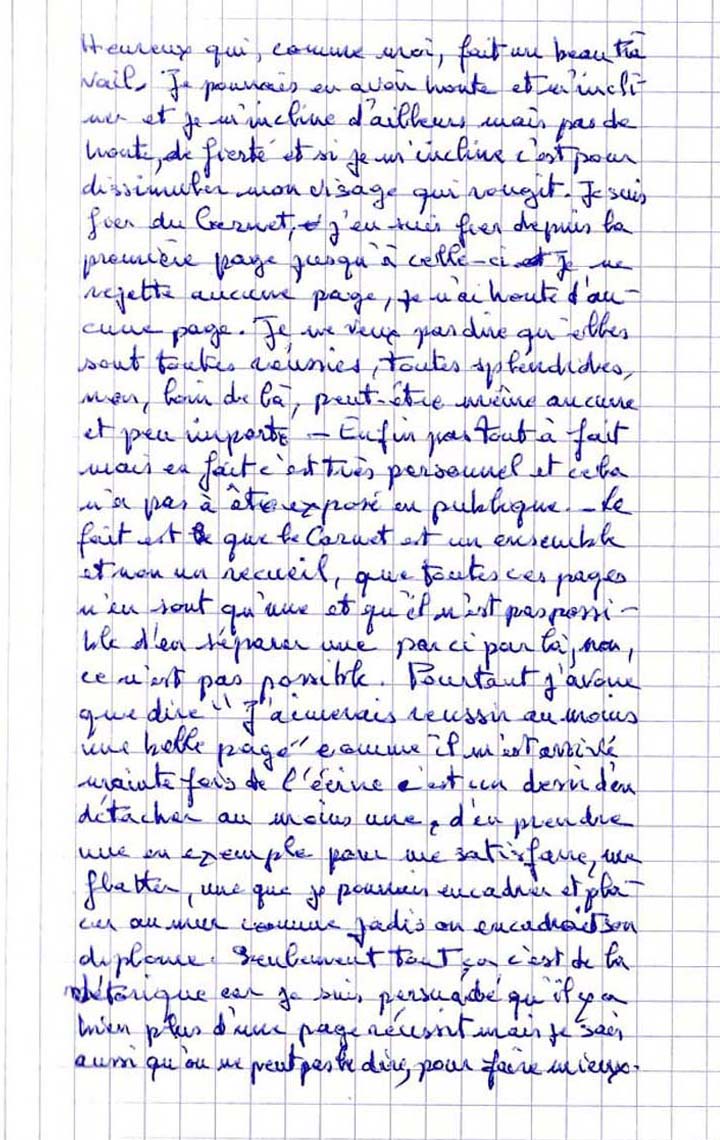 Heureux qui, comme moi, fait un beau tra
vail. Je pourrais en avoir honte et m'incli-
ner et je m'incline d'ailleurs mais pas de
honte, de fierté et si je m'incline c'est pour
dissimuler mon visage qui rougit. Je suis
fier du Carnet, j'en suis fier depuis la
première page jusqu'à celle-ci et Je ne
rejette aucune page, je n'ai honte d'au-
cune page. Je ne veux pas dire qu'elles
sont toutes réussies, toutes splendides,
non, loin de là, peut-être même aucune
et peu importe - Enfin pas tout à fait
mais en fait c'est très personnel et cela
n'a pas à être exposé en publique. - Le
fait est que le Carnet est un ensemble
et non un recueil, que toutes ces pages
n'en sont qu'une et qu'il n'est pas possi-
ble d'en séparer une par ci par là, non,
ce n'est pas possible. Pourtant j'avoue
que dire "J'aimerais reussir au moins
une belle page" comme il m'est arrivé
mainte fois de l'écrire c'est un desir d'en
détacher au moins une, d'en prendre
une en exemple pour me satisfaire, me
flatter, une que je pourrais encadrer et pla-
cer au mur comme jadis on encadrait son
diplome. Seulement tout ça c'est de la
rhétorique car je suis persuadé qu'il y a
bien plus d'une page réussit mais je sais
aussi qu'on ne peut pas le dire, pour faire mieux.